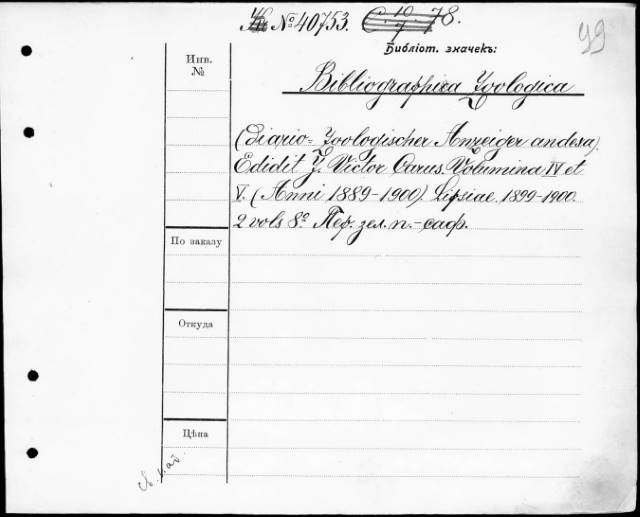 № 40753.
99
Библіот. значекъ:
Инв.
№
Bibliographica Zoologica
(diario-Zoologischer Anzeiger andexa)
Edidit J. Victor Carus. Volumina IV et
V. (Anni 1889-1900) Lipsiae. 1899-1900.
2 vols 8º. Пер. зел. п.-саф.
По заказу
Откуда
Цѣна